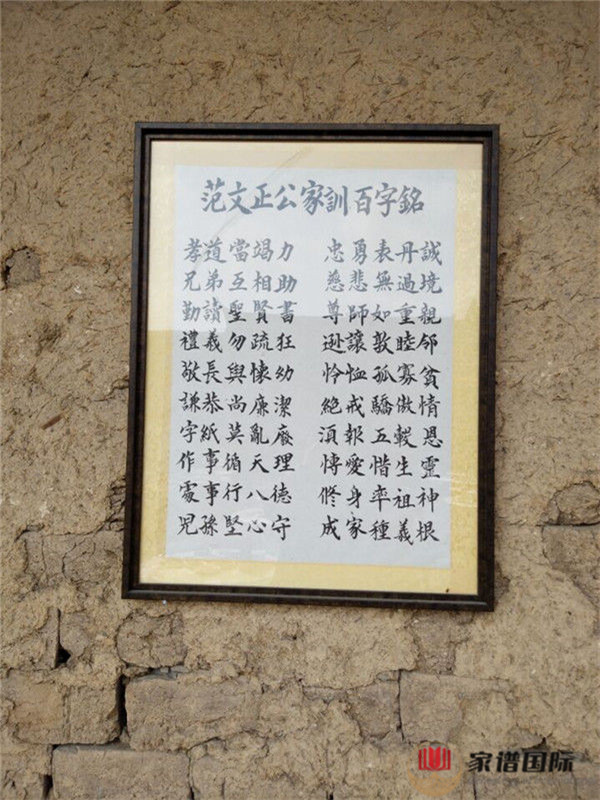 范文正公家訓百字銘
孝道當竭力 忠勇表丹誠
兄弟互相助 慈悲無過境
勤讀聖賢書 尊師如重親
禮義勿疏狂 逊讓敦睦邻
敬長與懷幼 怜恤孤寡貧
謙恭尚廉潔 絕戒驕傲情
字紙莫亂廢 須報五穀恩
作事循天理 博愛惜生靈
處事行八德 修身率祖神
兒孫堅心守 成家種義根
家谱国际